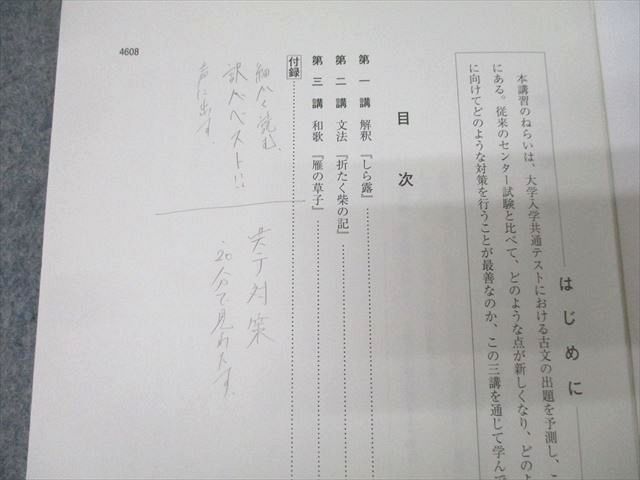 はじめに
本講習のねらいは、大学入学共通テストにおける古文の出題を予測し、こ
にある。従来のセンター試験と比べて、どのような点が新しくなり、どのよ
に向けてどのような対策を行うことが最善なのか、この三講を通じて学んで
目次
第一講 解釈 『しら露』
第二講 文法 『折たく柴の記』
第三講 和歌 『雁の草子』
付録
細かく読む、
訳がベスト!!
声に出す。
共テ対策
20分で見わたす。
4608